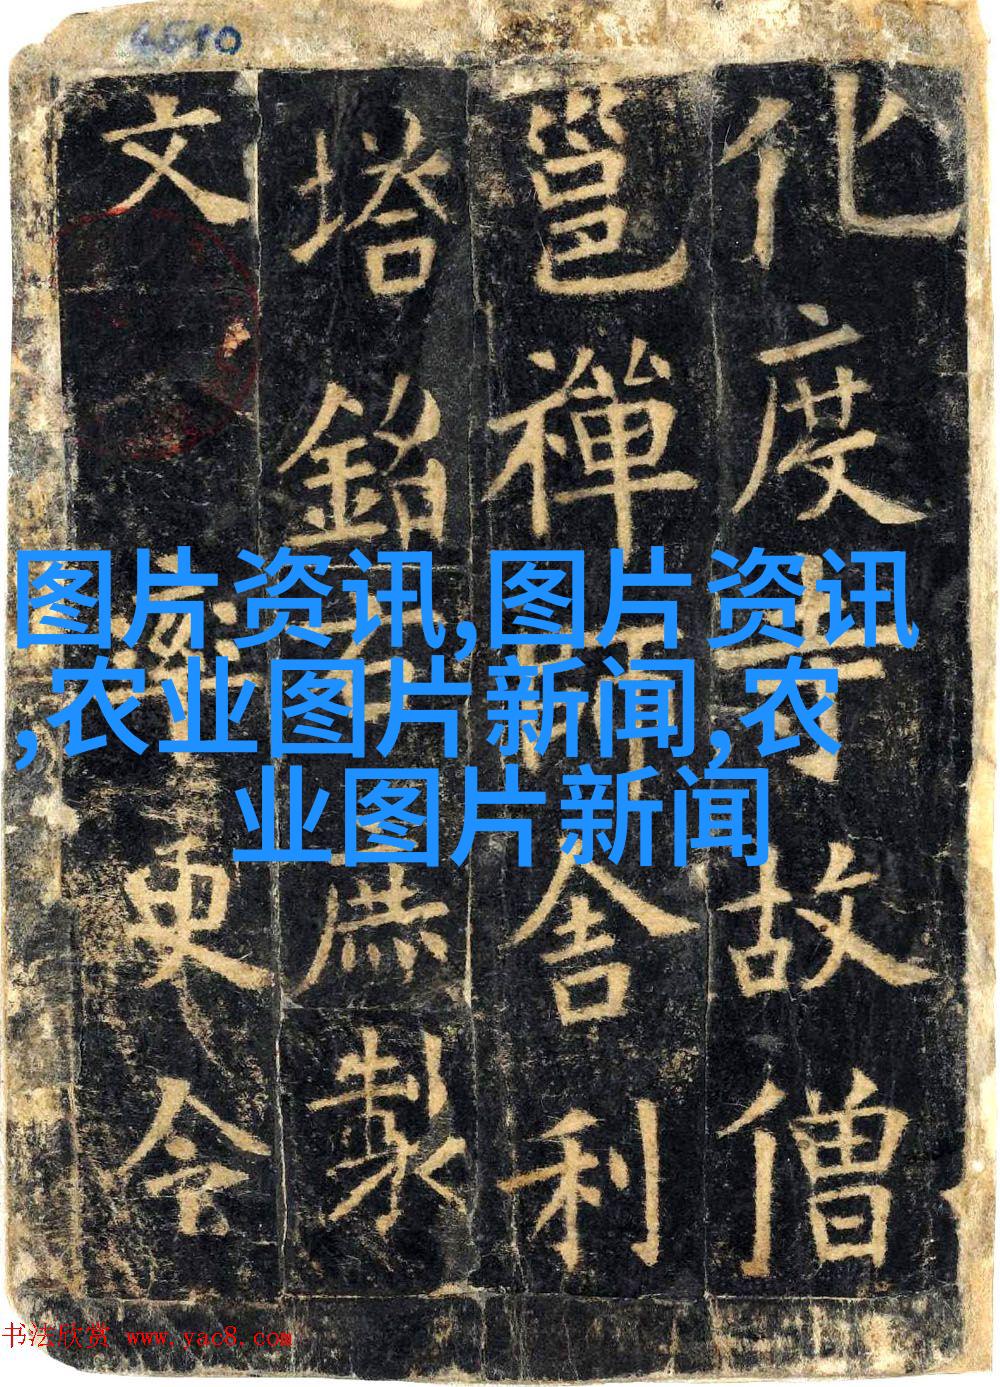 化度寺故僧
邕禪師舍利
塔銘右庶製
文率更令
图片资讯,图片资讯
,农业图片新闻,农
业图片新闻
书法欣赏 www.yac8.com